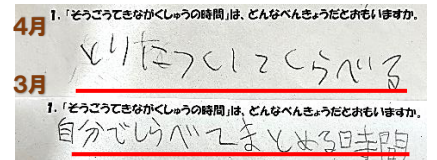 4月
1.「そうごうてきながくしゅうの時間」は、どんなべんきょうだとおもいますか。
とりたっくしてくらべる
3月
1.「そうごうてきながくしゅうの時間」は、どんなべんきょうだとおもいますか。
自分でしらべてまとめる時間